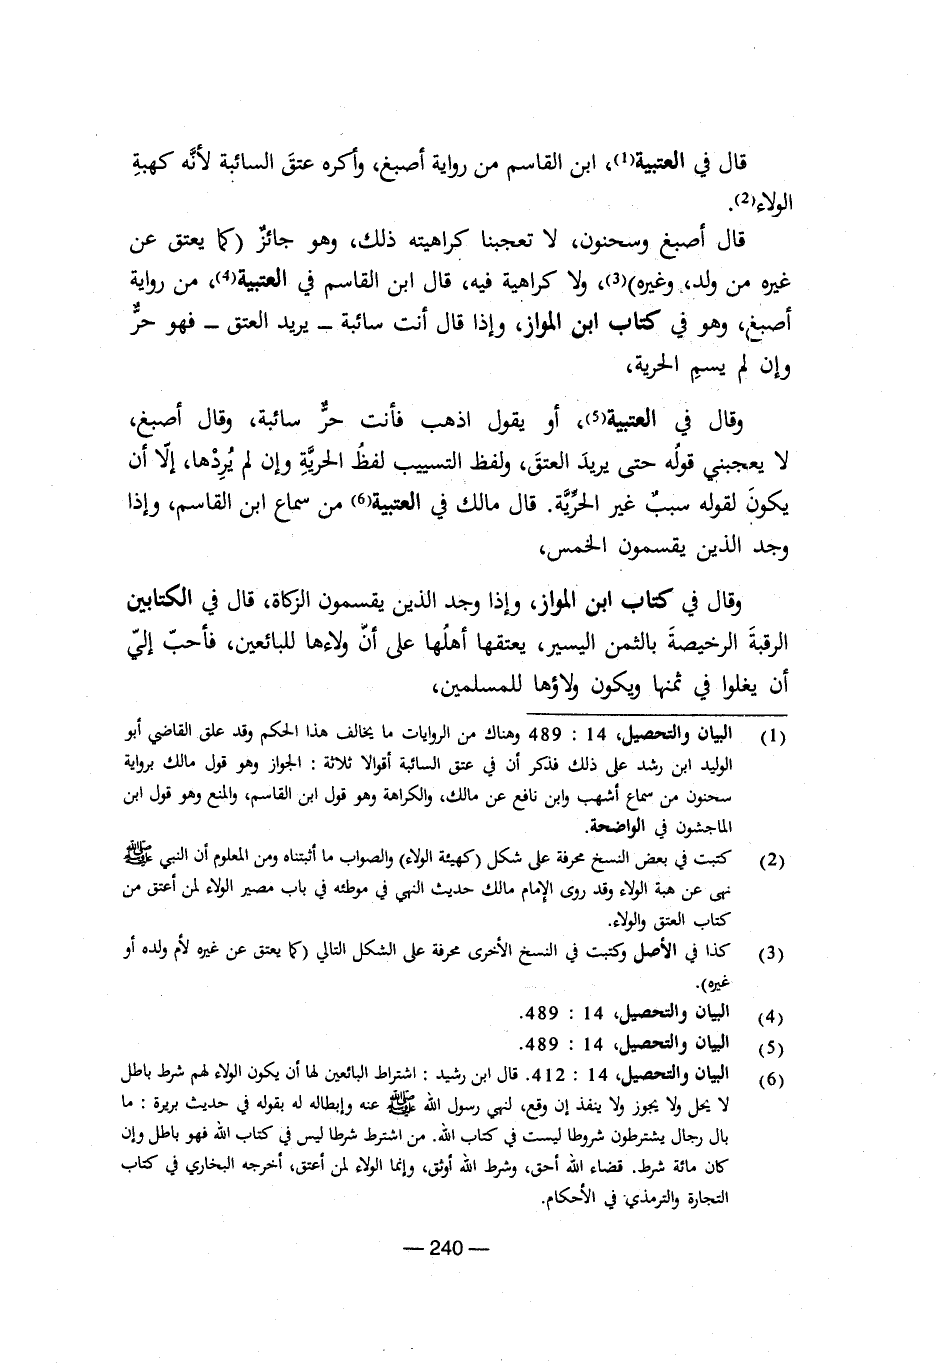 قال في العتبية(1)، ابن القاسم من رواية أصبغ، وأكره عتقَ السائبة لأنَّه كهبةِ
الولاء(2).
قال أصبغ وسحنون، لا تعجبنا كراهيته ذلك، وهو جائزٌ (كما يعتق عن
غيره من ولد، وغيره)(3)، ولا كراهية فيه، قال ابن القاسم في العتبية(4)، من رواية
أصبغ، وهو في كتاب ابن المواز، وإذا قال أنت سائبة – يريد العتق – فهو حرٌّ
وإن لم يسمِ الحرية،
وقال في العتبية(5)، أو يقول اذهب فأنت حرٌّ سائبة، وقال أصبغ،
لا يعجبني قولُه حتى يريدَ العتقَ، ولفظ التسييب لفظُ الحريَّةِ وإن لم يُرِدْها، إلّا أن
يكونَ لقوله سببٌ غير الحرِّيَّة. قال مالك في العتبية(6) من سماع ابن القاسم، وإذا
وجد الذين يقسمون الخمس،
وقال في كتاب ابن المواز، وإذا وجد الذين يقسمون الزكاة، قال في الكتابين
الرقبةَ الرخيصةَ بالثمن اليسير، يعتقها أهلُها على أنّ ولاءها للبائعين، فأحبّ إليّ
أن يغلوا في ثمنها ويكون ولاؤها للمسلمين،
(1) البيان والتحصيل، 14 : 489 وهناك من الروايات ما يخالف هذا الحكم وقد علق القاضي أبو
الوليد ابن رشد على ذلك فذكر أن في عتق السائبة أقوالا ثلاثة : الجواز وهو قول مالك برواية
سحنون من سماع أشهب وابن نافع عن مالك، والكراهة وهو قول ابن القاسم، والمنع وهو قول ابن
الماجشون في الواضحة.
(2) كتبت في بعض النسخ محرفة على شكل (كهيئة الولاء) والصواب ما أثبتناه ومن المعلوم أن النبي ﷺ
نهى عن هبة الولاء وقد روى الإمام مالك حديث النهي في موطئه في باب مصير الولاء لمن أعتق من
كتاب العتق والولاء.
(3) كذا في الأصل وكتبت في النسخ الأخرى محرفة على الشكل التالي (كما يعتق عن غيره لأم ولده أو
غيره).
(4) البيان والتحصيل، 14 : 489.
(5) البيان والتحصيل، 14 : 489.
(6) البيان والتحصيل، 14 : 412. قال ابن رشيد : اشتراط البائعين لها أن يكون الولاء لهم شرط باطل
لا يحل ولا يجوز ولا ينفذ إن وقع، لنهي رسول الله ﷺ عنه وإبطاله له بقوله في حديث بريرة : ما
بال رجال يشترطون شروطا ليست في كتاب الله. من اشترط شرطا ليس في كتاب الله فهو باطل وإن
كان مائة شرط. قضاء الله أحق، وشرط الله أوثق، وإنما الولاء لمن أعتق، أخرجه البخاري في كتاب
التجارة والترمذي في الأحكام.
— 240 —